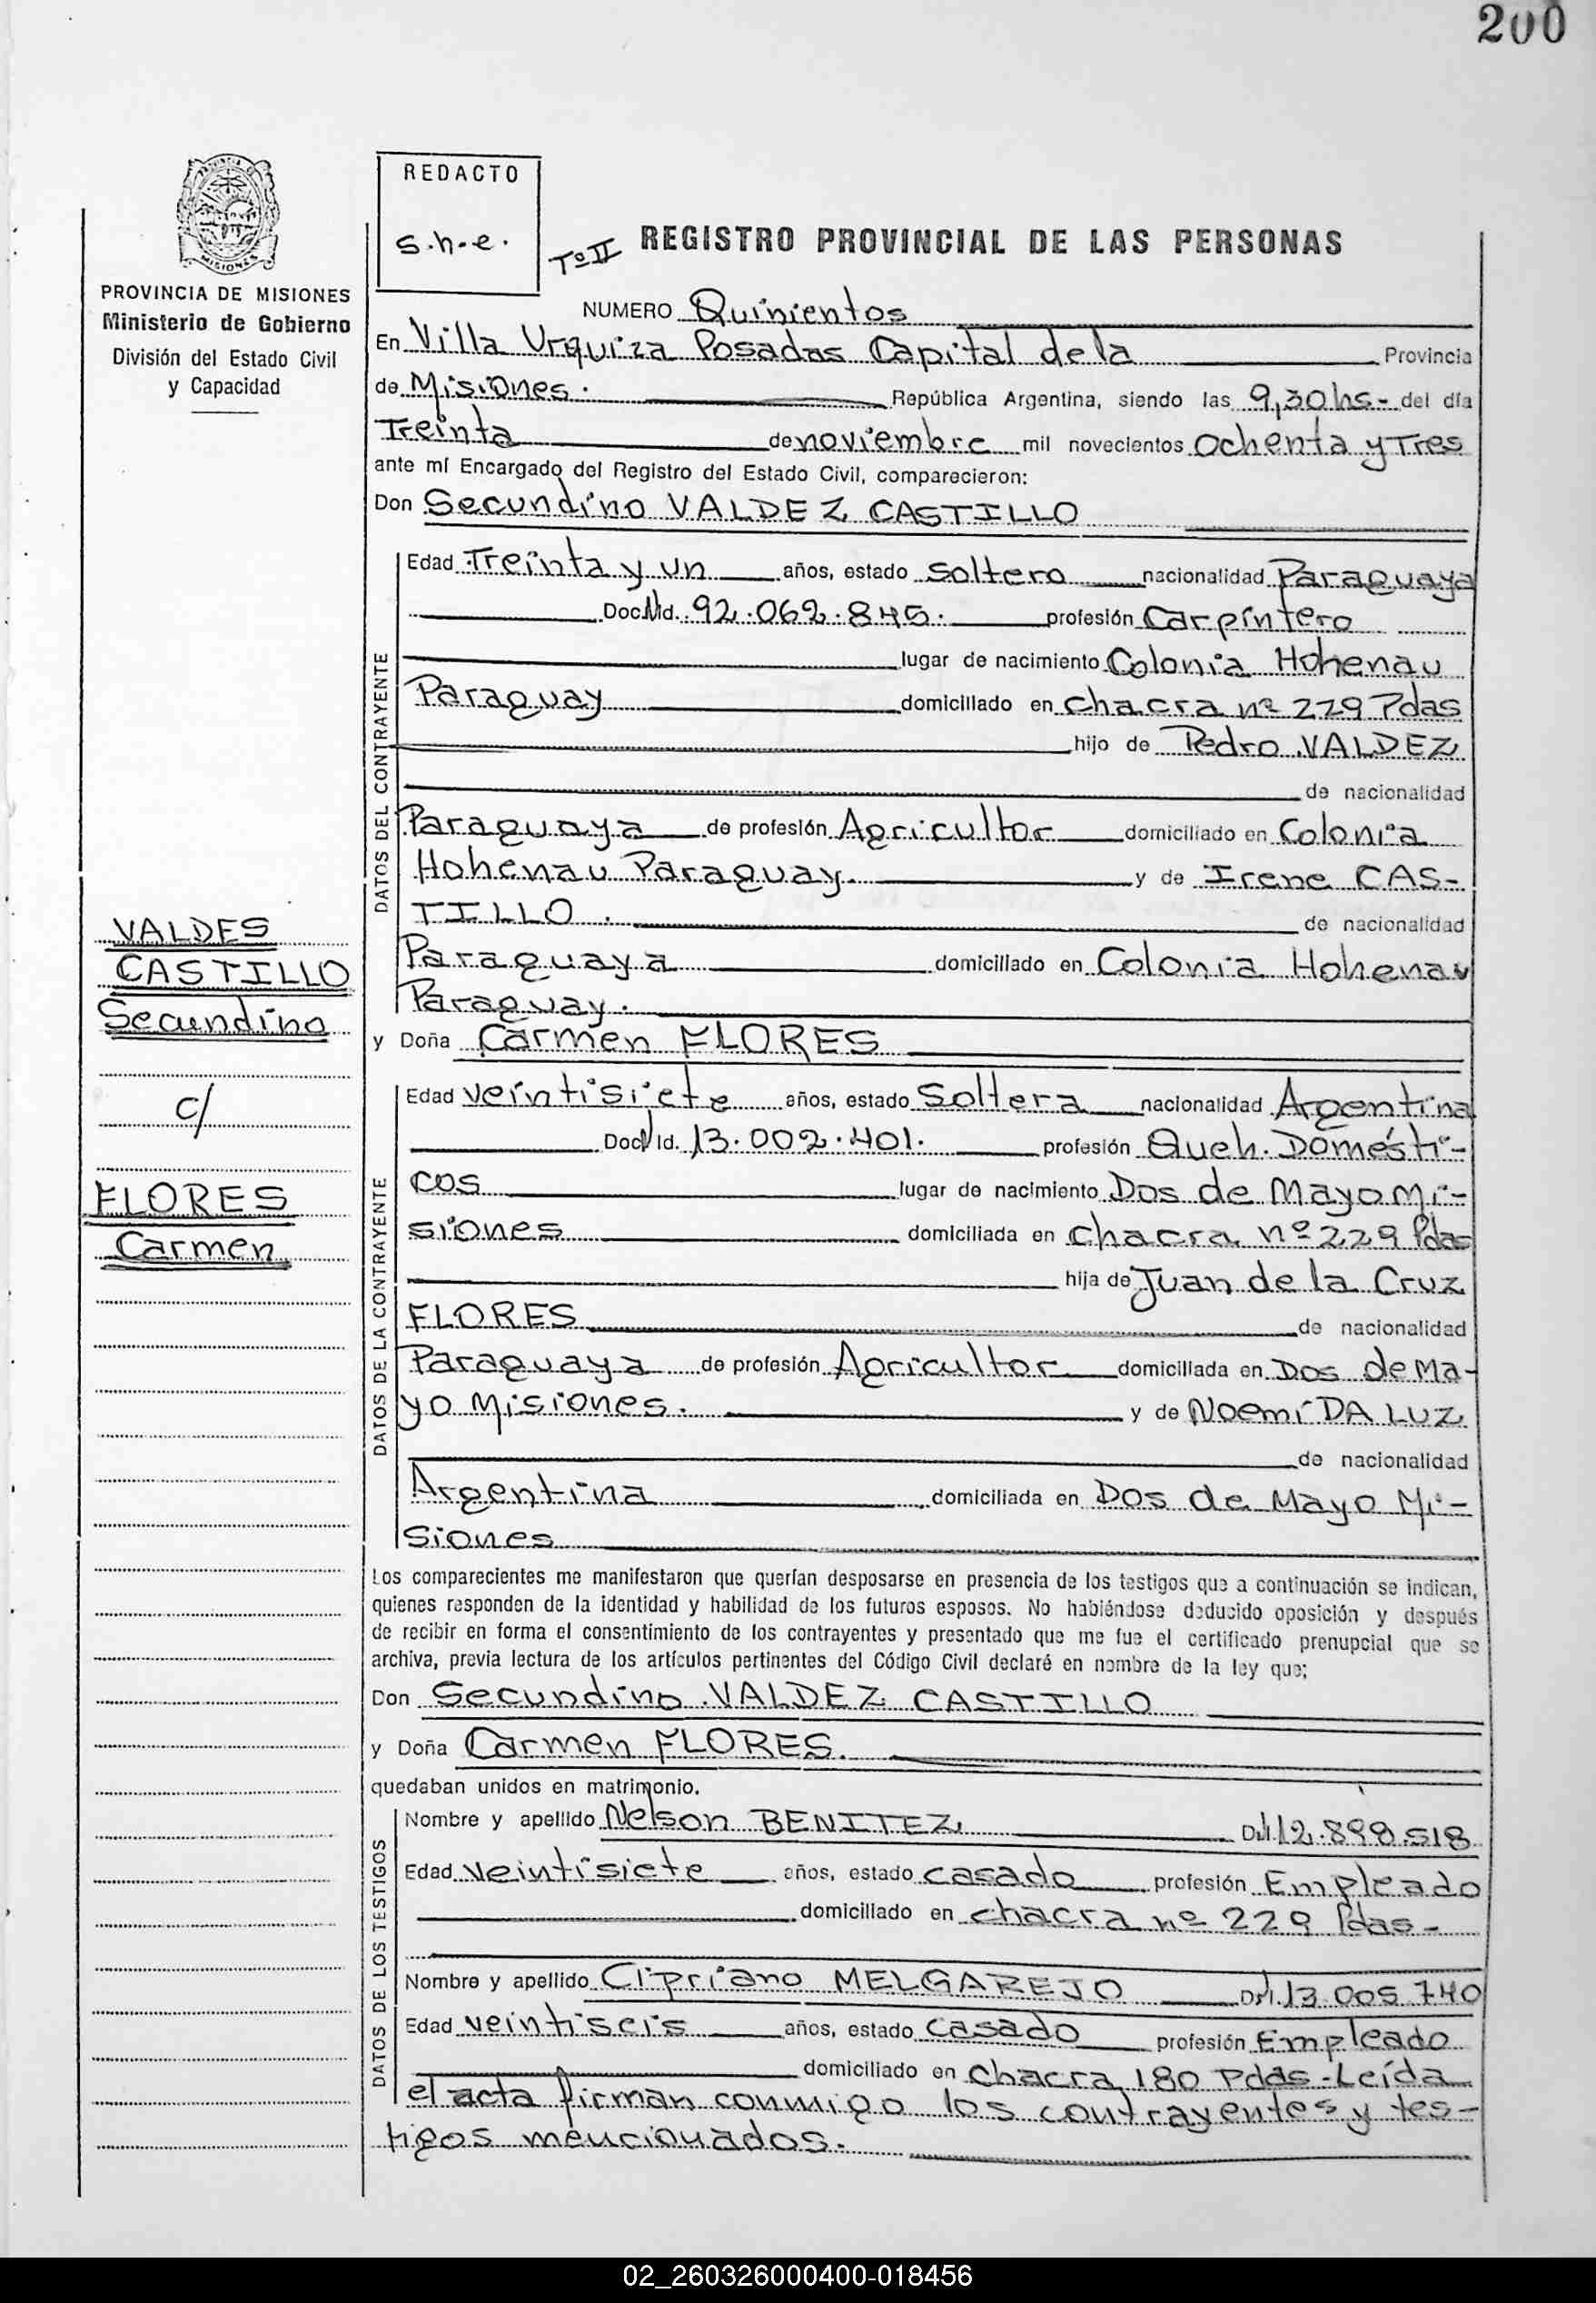 200
REDACTO
s.h.e.
Tº II
REGISTRO PROVINCIAL DE LAS PERSONAS
MISIONES
PROVINCIA DE MISIONES
Ministerio de Gobierno
División del Estado Civil
y Capacidad
VALDES
CASTILLO
Secundino
c/
FLORES
Carmen
NUMERO Quinientos
En Villa Urquiza Posadas Capital de la Provincia
de Misiones. República Argentina, siendo las 9,30 hs- del día
Treinta de noviembre mil novecientos ochenta y Tres
ante mí Encargado del Registro del Estado Civil, comparecieron:
Don Secundino VALDEZ CASTILLO
DATOS DEL CONTRAYENTE
Edad Treinta y un años, estado soltero nacionalidad Paraguaya
Doc. Id. 92.062.845. profesión Carpintero
lugar de nacimiento Colonia Hohenau
Paraguay domiciliado en chacra nº 229 Pdas
hijo de Pedro VALDEZ
de nacionalidad
Paraguaya de profesión Agricultor domiciliado en Colonia
Hohenau Paraguay. y de Irene CAS-
TILLO. de nacionalidad
Paraguaya domiciliado en Colonia Hohenau
Paraguay.
y Doña Carmen FLORES
DATOS DE LA CONTRAYENTE
Edad veintisiete años, estado Soltera nacionalidad Argentina
Doc. Id. 13.002.401. profesión Queh. Domésti-
cos lugar de nacimiento Dos de Mayo Mi-
siones domiciliada en chacra nº 229 Pdas
hija de Juan de la Cruz
FLORES de nacionalidad
Paraguaya de profesión Agricultor domiciliada en Dos de Ma-
yo Misiones. y de Noemí DA LUZ
de nacionalidad
Argentina domiciliada en Dos de Mayo Mi-
siones
Los comparecientes me manifestaron que querían desposarse en presencia de los testigos que a continuación se indican,
quienes responden de la identidad y habilidad de los futuros esposos. No habiéndose deducido oposición y después
de recibir en forma el consentimiento de los contrayentes y presentado que me fue el certificado prenupcial que se
archiva, previa lectura de los artículos pertinentes del Código Civil declaré en nombre de la ley que;
Don Secundino VALDEZ CASTILLO
y Doña Carmen FLORES.
quedaban unidos en matrimonio.
DATOS DE LOS TESTIGOS
Nombre y apellido Nelson BENITEZ D.I. 12.898.518
Edad veintisiete años, estado casado profesión Empleado
domiciliado en chacra nº 229 Pdas-
Nombre y apellido Cipriano MELGAREJO D.I. 13.005.740
Edad veintiseis años, estado casado profesión Empleado
domiciliado en chacra 180 Pdas-Leída
el acta firman conmigo los contrayentes y tes-
tigos mencionados.
02_260326000400-018456